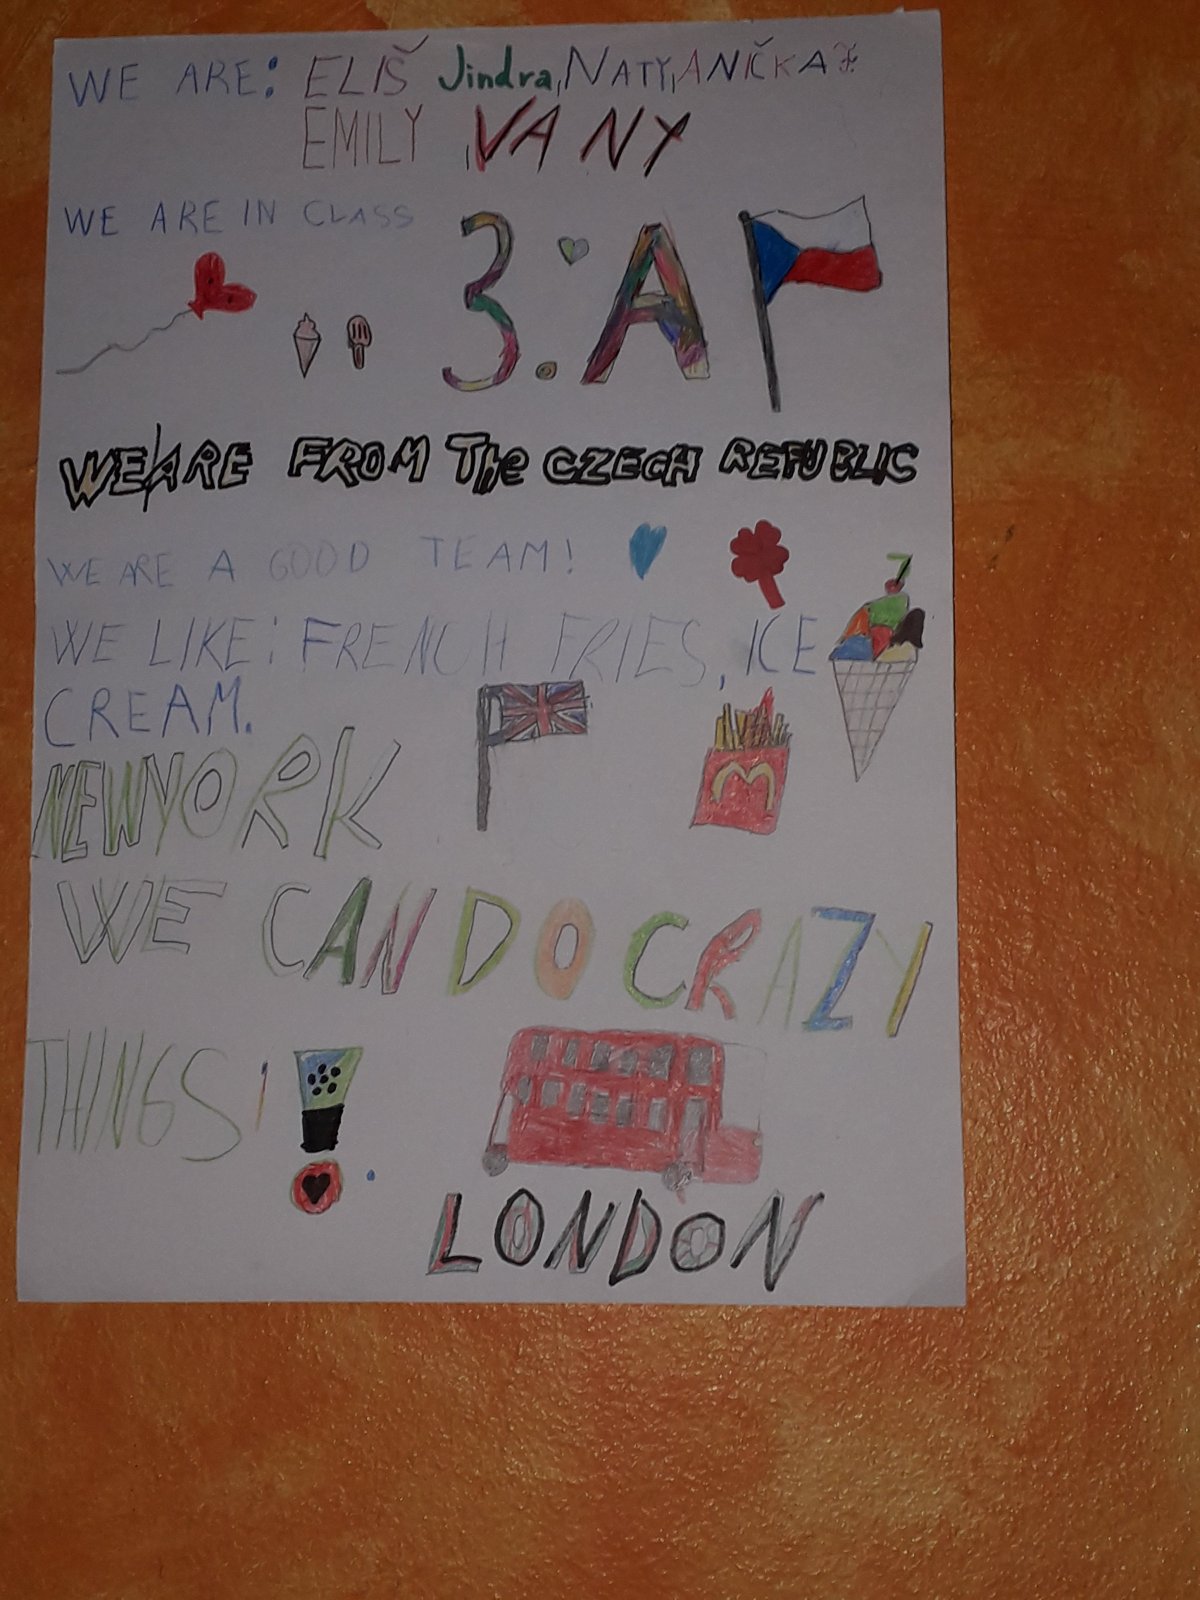 WE ARE: ELIŠ Jindra, NATY, ANIČKA
EMILY, VANY
WE ARE IN CLASS 3.A
WE ARE FROM The CZECH REPUBLIC
WE ARE A GOOD TEAM!
WE LIKE: FRENCH FRIES, ICE
CREAM.
M
NEW YORK
WE CAN DO CRAZY
THINGS!
LONDON